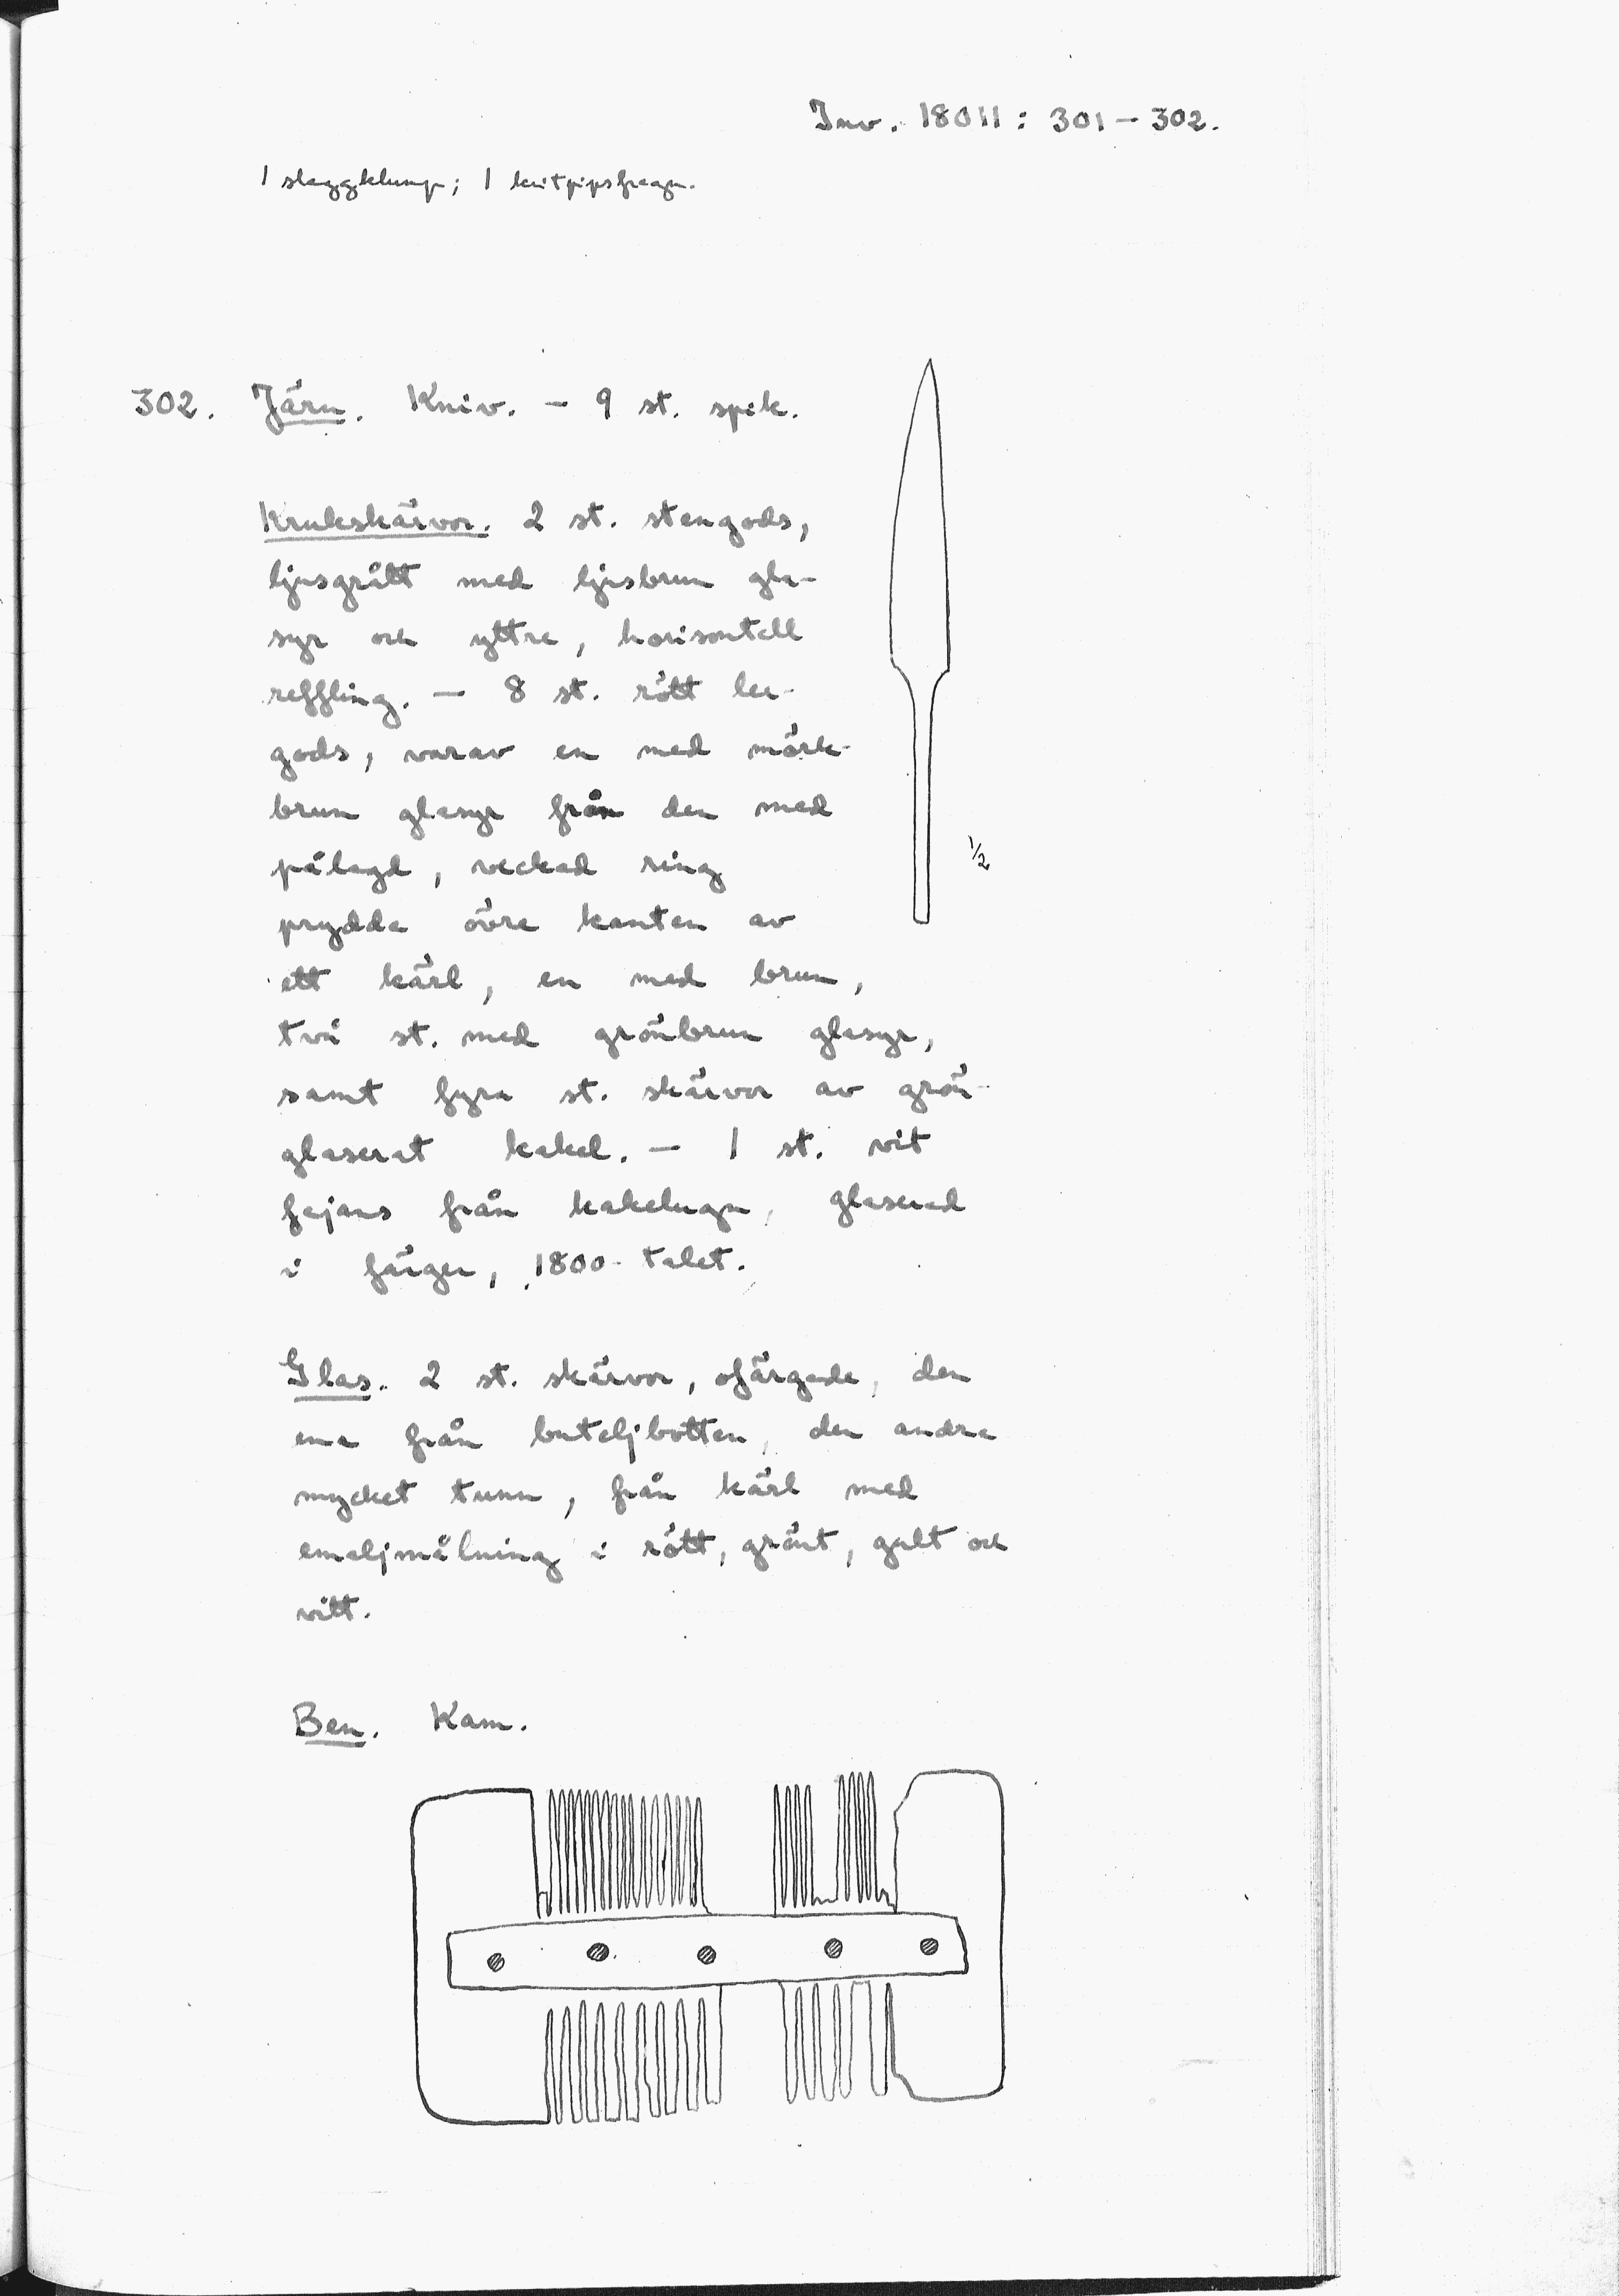 Inv. 18011: 301–302.
1 slaggklump; 1 kritpipsfragm.
302. Järn. Kniv. – 9 st. spik.
Krukskärvor. 2 st. stengods,
ljusgrått med ljusbrun gla-
syr och yttre, horisontell
reffling. – 8 st. rött ler-
gods, varav en med mörk-
brun glasyr från den med
pålagd, veckad ring
prydda övre kanten av
ett kärl, en med brun,
två st. med grönbrun glasyr,
samt fyra st. skärvor av grön-
glaserat kakel. – 1 st. vit
fajans från kakelugn, glaserad
i färger, 1800-talet.
Glas. 2 st. skärvor, ofärgade, den
ena från buteljbotten, den andra
mycket tunn, från kärl med
emaljmålning i rött, grönt, gult och
vitt.
Ben. Kam.
1/2